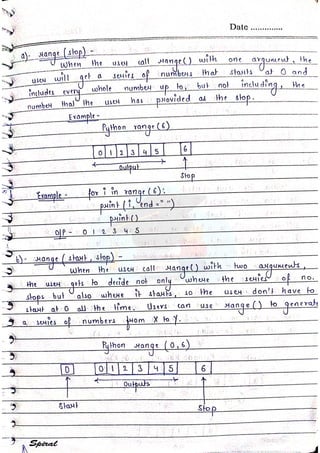 Date ..............
a). range (stop) -
When the user call range() with one argument, the
user will get a series of numbers that starts at 0 and
includes every whole number up to, but not including, the
number that the user has provided as the stop.
Example -
Python range (6)
0 1 2 3 4 5 6
output
Stop
Example - for i in range (6):
print (i, end = " ")
print()
O/P - 0 1 2 3 4 5
b) - range (start, stop) -
When the user call range() with two arguments,
the user gets to decide not only where the series of no.
stops but also where it starts, so the user don't have to
start at 0 all the time. Users can use range() to generate
a series of numbers from X to Y.
Python range (0,6)
0 0 1 2 3 4 5 6
Outputs
Start
Stop
Spiral